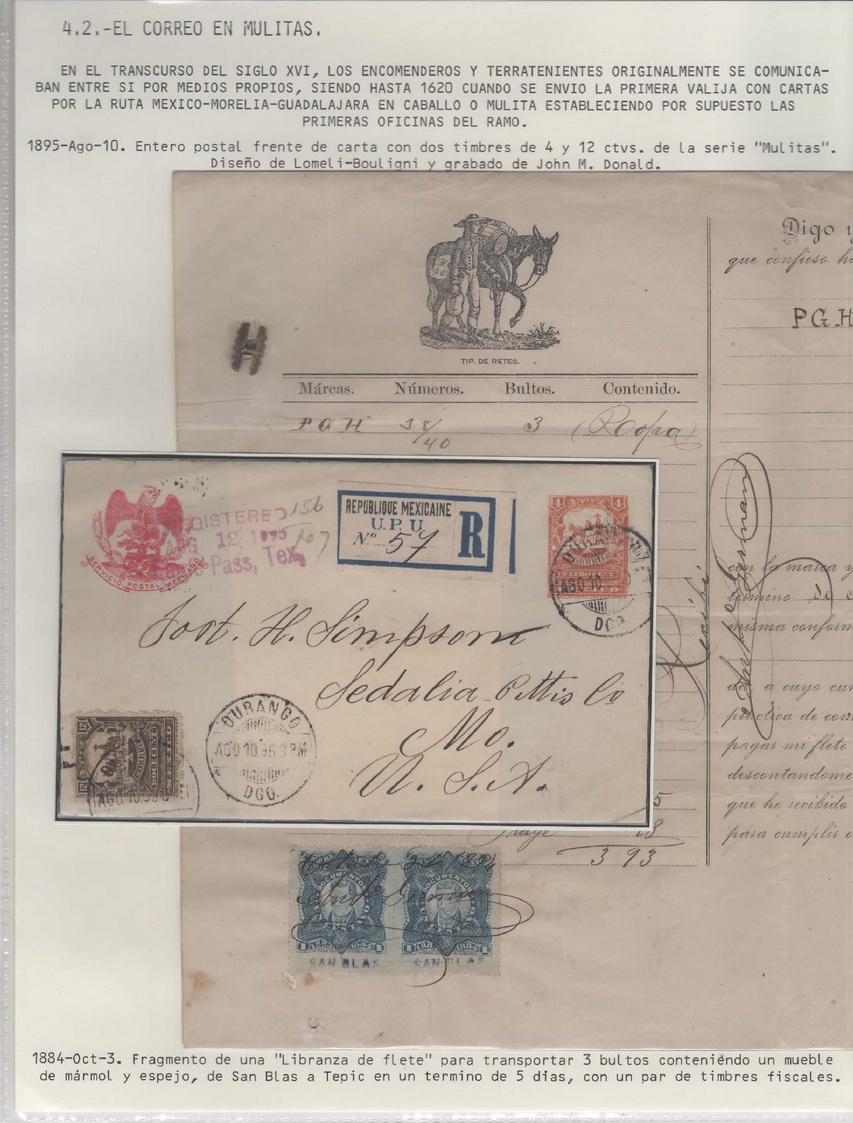 4.2.-EL CORREO EN MULITAS.
EN EL TRANSCURSO DEL SIGLO XVI, LOS ENCOMENDEROS Y TERRATENIENTES ORIGINALMENTE SE COMUNICA-
BAN ENTRE SI POR MEDIOS PROPIOS, SIENDO HASTA 1620 CUANDO SE ENVIO LA PRIMERA VALIJA CON CARTAS
POR LA RUTA MEXICO-MORELIA-GUADALAJARA EN CABALLO O MULITA ESTABLECIENDO POR SUPUESTO LAS
PRIMERAS OFICINAS DEL RAMO.
1895-Ago-10. Entero postal frente de carta con dos timbres de 4 y 12 ctvs. de la serie "Mulitas".
Diseño de Lomeli-Bouligni y grabado de John M. Donald.
TIP. DE RETES.
Márcas. Números. Bultos. Contenido.
PGH 38/40 3 (Ropa)
Digo y
que confieso
PGH
SERVICIO POSTAL MEXICANO
GISTERED
12 1895
Pass, Tex.
156
107
REPUBLIQUE MEXICAINE
U.P.U.
No. 57
R
4
AGO 10
DGO.
Post. H. Simpson
Sedalia Pettis Co
Mo.
U.S.A.
12
DURANGO
AGO 10 95 3 PM
DGO.
AGO 10 95
Recibí
con la marca y
termino de
misma conform
a cuyo
practica de
pagar mi flete
descontandome
que he recibido
para cumplir
3 93
DOCUMENTOS
DOCUMENTOS
SAN BLAS
SAN BLAS
1884-Oct-3. Fragmento de una "Libranza de flete" para transportar 3 bultos conteniéndo un mueble
de mármol y espejo, de San Blas a Tepic en un termino de 5 días, con un par de timbres fiscales.